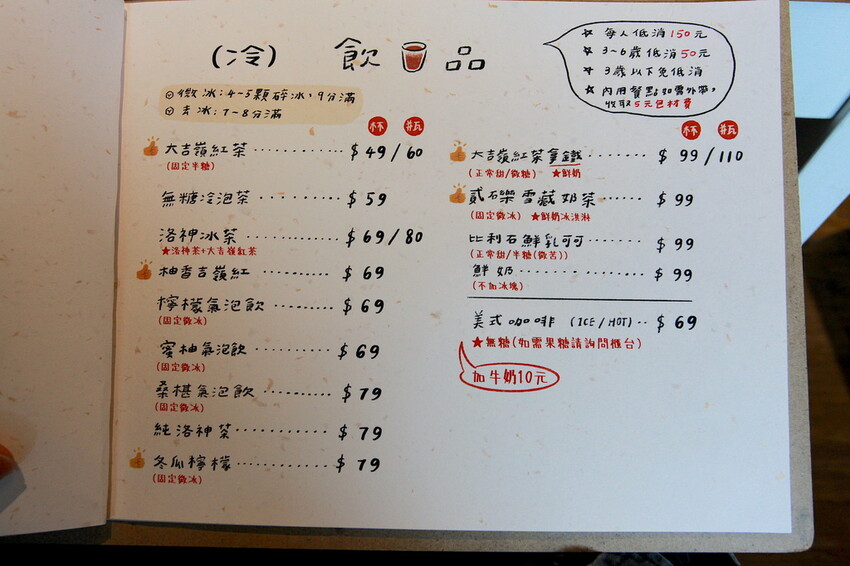 (冷) 飲品
微冰:4~5顆碎冰,9分滿
去冰:7~8分滿
☆ 每人低消150元
☆ 3~6歲低消50元
☆ 3歲以下免低消
☆ 內用餐點如需外帶,
收取5元包材費
杯 瓶
大吉嶺紅茶 $49/60
(固定半糖)
無糖冷泡茶 $59
洛神冰茶 $69/80
★洛神茶+大吉嶺紅茶
柚香吉嶺紅 $69
檸檬氣泡飲 $69
(固定微冰)
蜜柚氣泡飲 $69
(固定微冰)
桑椹氣泡飲 $79
(固定微冰)
純洛神茶 $79
冬瓜檸檬 $79
(固定微冰)
杯 瓶
大吉嶺紅茶拿鐵 $99/110
(正常甜/微糖) ★鮮奶
貳石樂雪藏奶茶 $99
(固定微冰) ★鮮奶冰淇淋
比利石鮮乳可可 $99
(正常甜/半糖(微苦))
鮮奶 $99
(不加冰塊)
美式咖啡 (ICE/HOT) $69
★無糖(如需果糖請詢問櫃台)
加牛奶10元